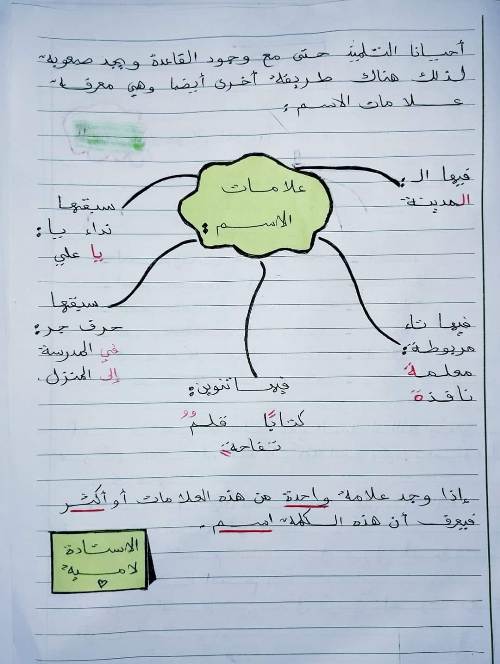 أحيانا التلميذ حتى مع وجود القاعدة ويجد صعوبة
لذلك هناك طريقة أخرى أيضا وهي معرفة
علامات الاسم :
علامات
الاسم :
فيها الـ :
المدينة
فيها تاء
مربوطة :
معلمة
نافذة
فيها تنوين :
كتابًا قلمٌ
تفاحةٍ
سبقها
حرف جر :
في المدرسة
إلى المنزل.
سبقها
نداء يا :
يا علي
إذا وجد علامة واحدة من هذه العلامات أو أكثر
فيعرف أن هذه الكلمة اسم .
الاستادة
لامية